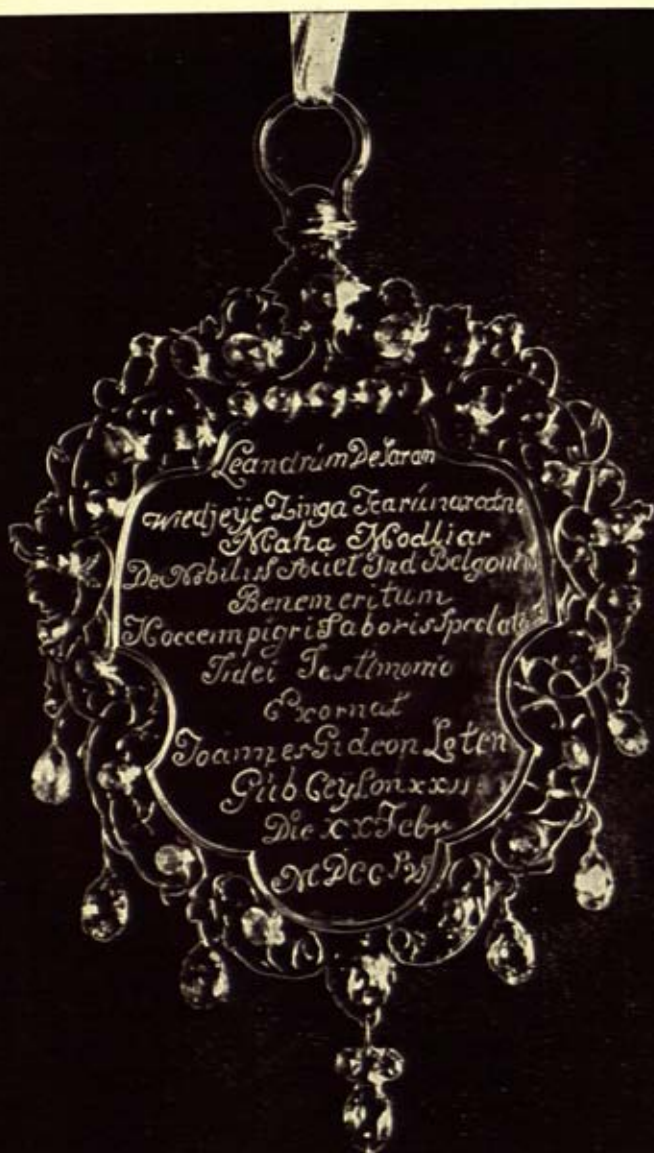 Leandrúm De Saram
Wiedjeÿe Zinga Karúnaratne
Maha Modliar
De Nobiliss Societ Ind Belgout
Benemeritum
Hocce impigri Laboris Spectatæ
Fidei Testimonio
Exornat
Joannes Gideon Loten
Gúb Ceylon xxii
Die XX Febr
MDCC